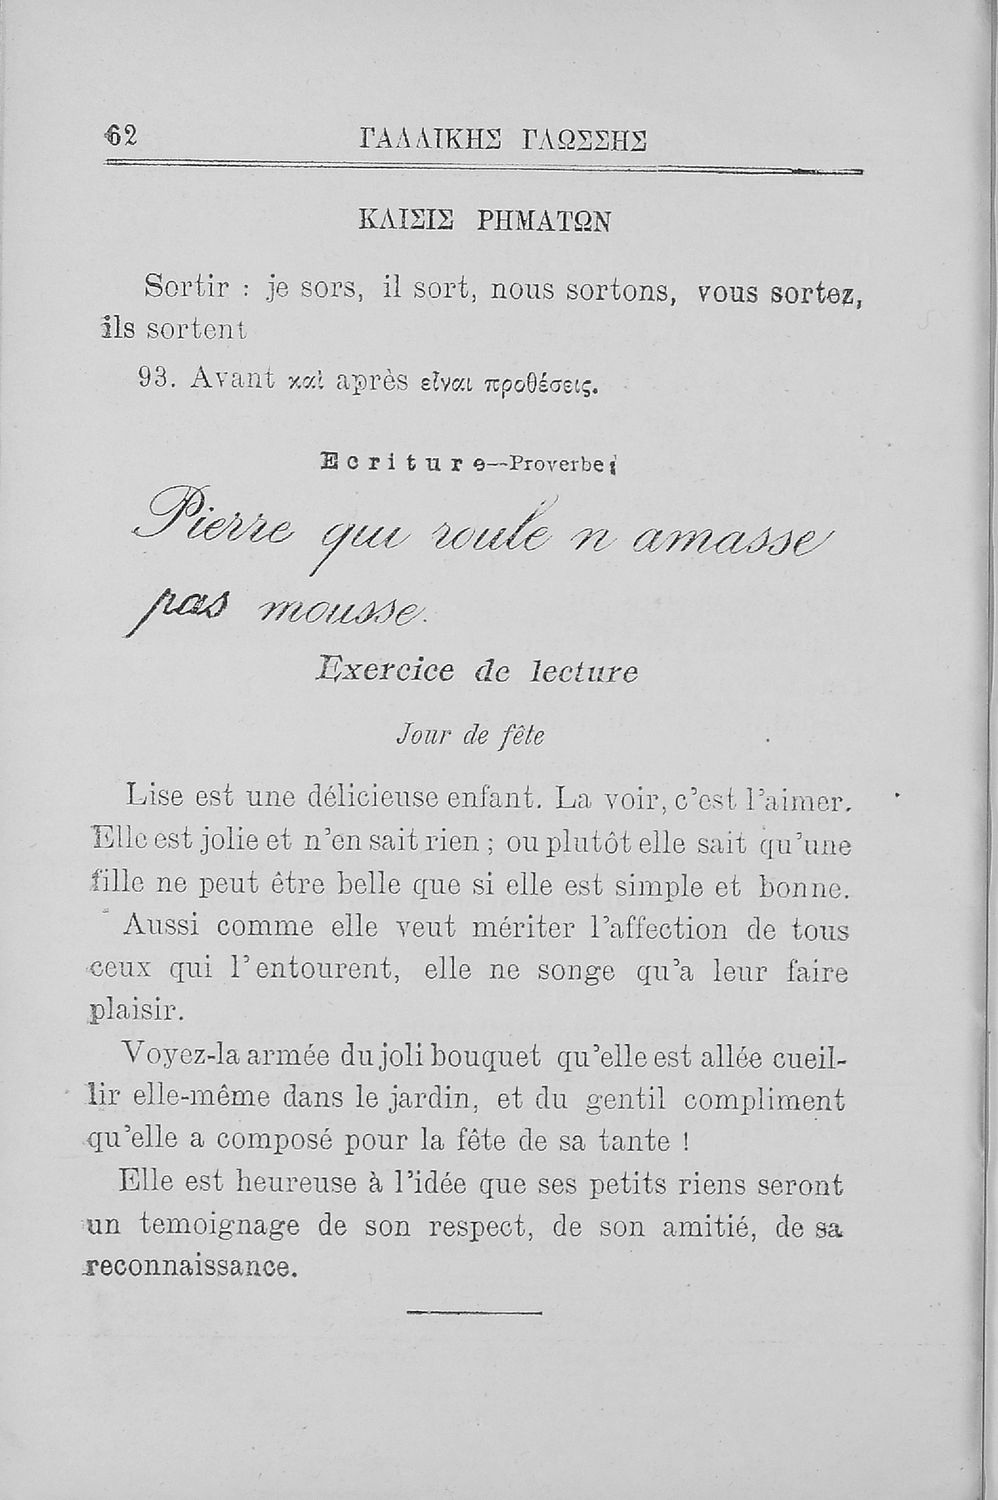 62 ΓΑΛΛΙΚΗΣ ΓΛΩΣΣΗΣ
ΚΛΙΣΙΣ ΡΗΜΑΤΩΝ
Sortir : je sors, il sort, nous sortons, vous sortez,
ils sortent
93. Avant καὶ après εἶναι προθέσεις.
Ecriture—Proverbe:
Pierre qui roule n amasse
pas mousse.
Exercice de lecture
Jour de fête
Lise est une délicieuse enfant. La voir, c'est l'aimer.
Elle est jolie et n'en sait rien ; ou plutôt elle sait qu'une
fille ne peut être belle que si elle est simple et bonne.
Aussi comme elle veut mériter l'affection de tous
ceux qui l'entourent, elle ne songe qu'a leur faire
plaisir.
Voyez-la armée du joli bouquet qu'elle est allée cueil-
lir elle-même dans le jardin, et du gentil compliment
qu'elle a composé pour la fête de sa tante !
Elle est heureuse à l'idée que ses petits riens seront
un temoignage de son respect, de son amitié, de sa
reconnaissance.